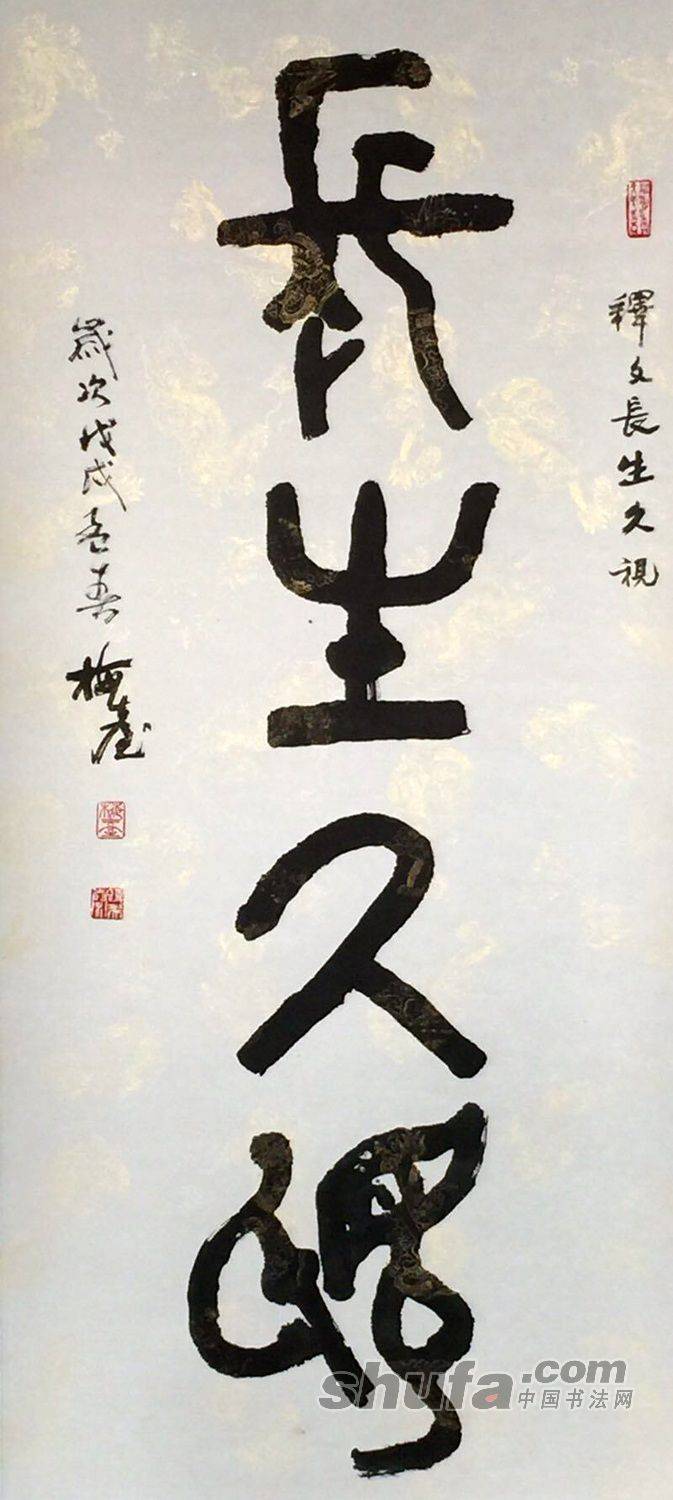 釋文長生久視
長生久視
歲次戊戌孟春梅崖
shufa.com
中国书法网